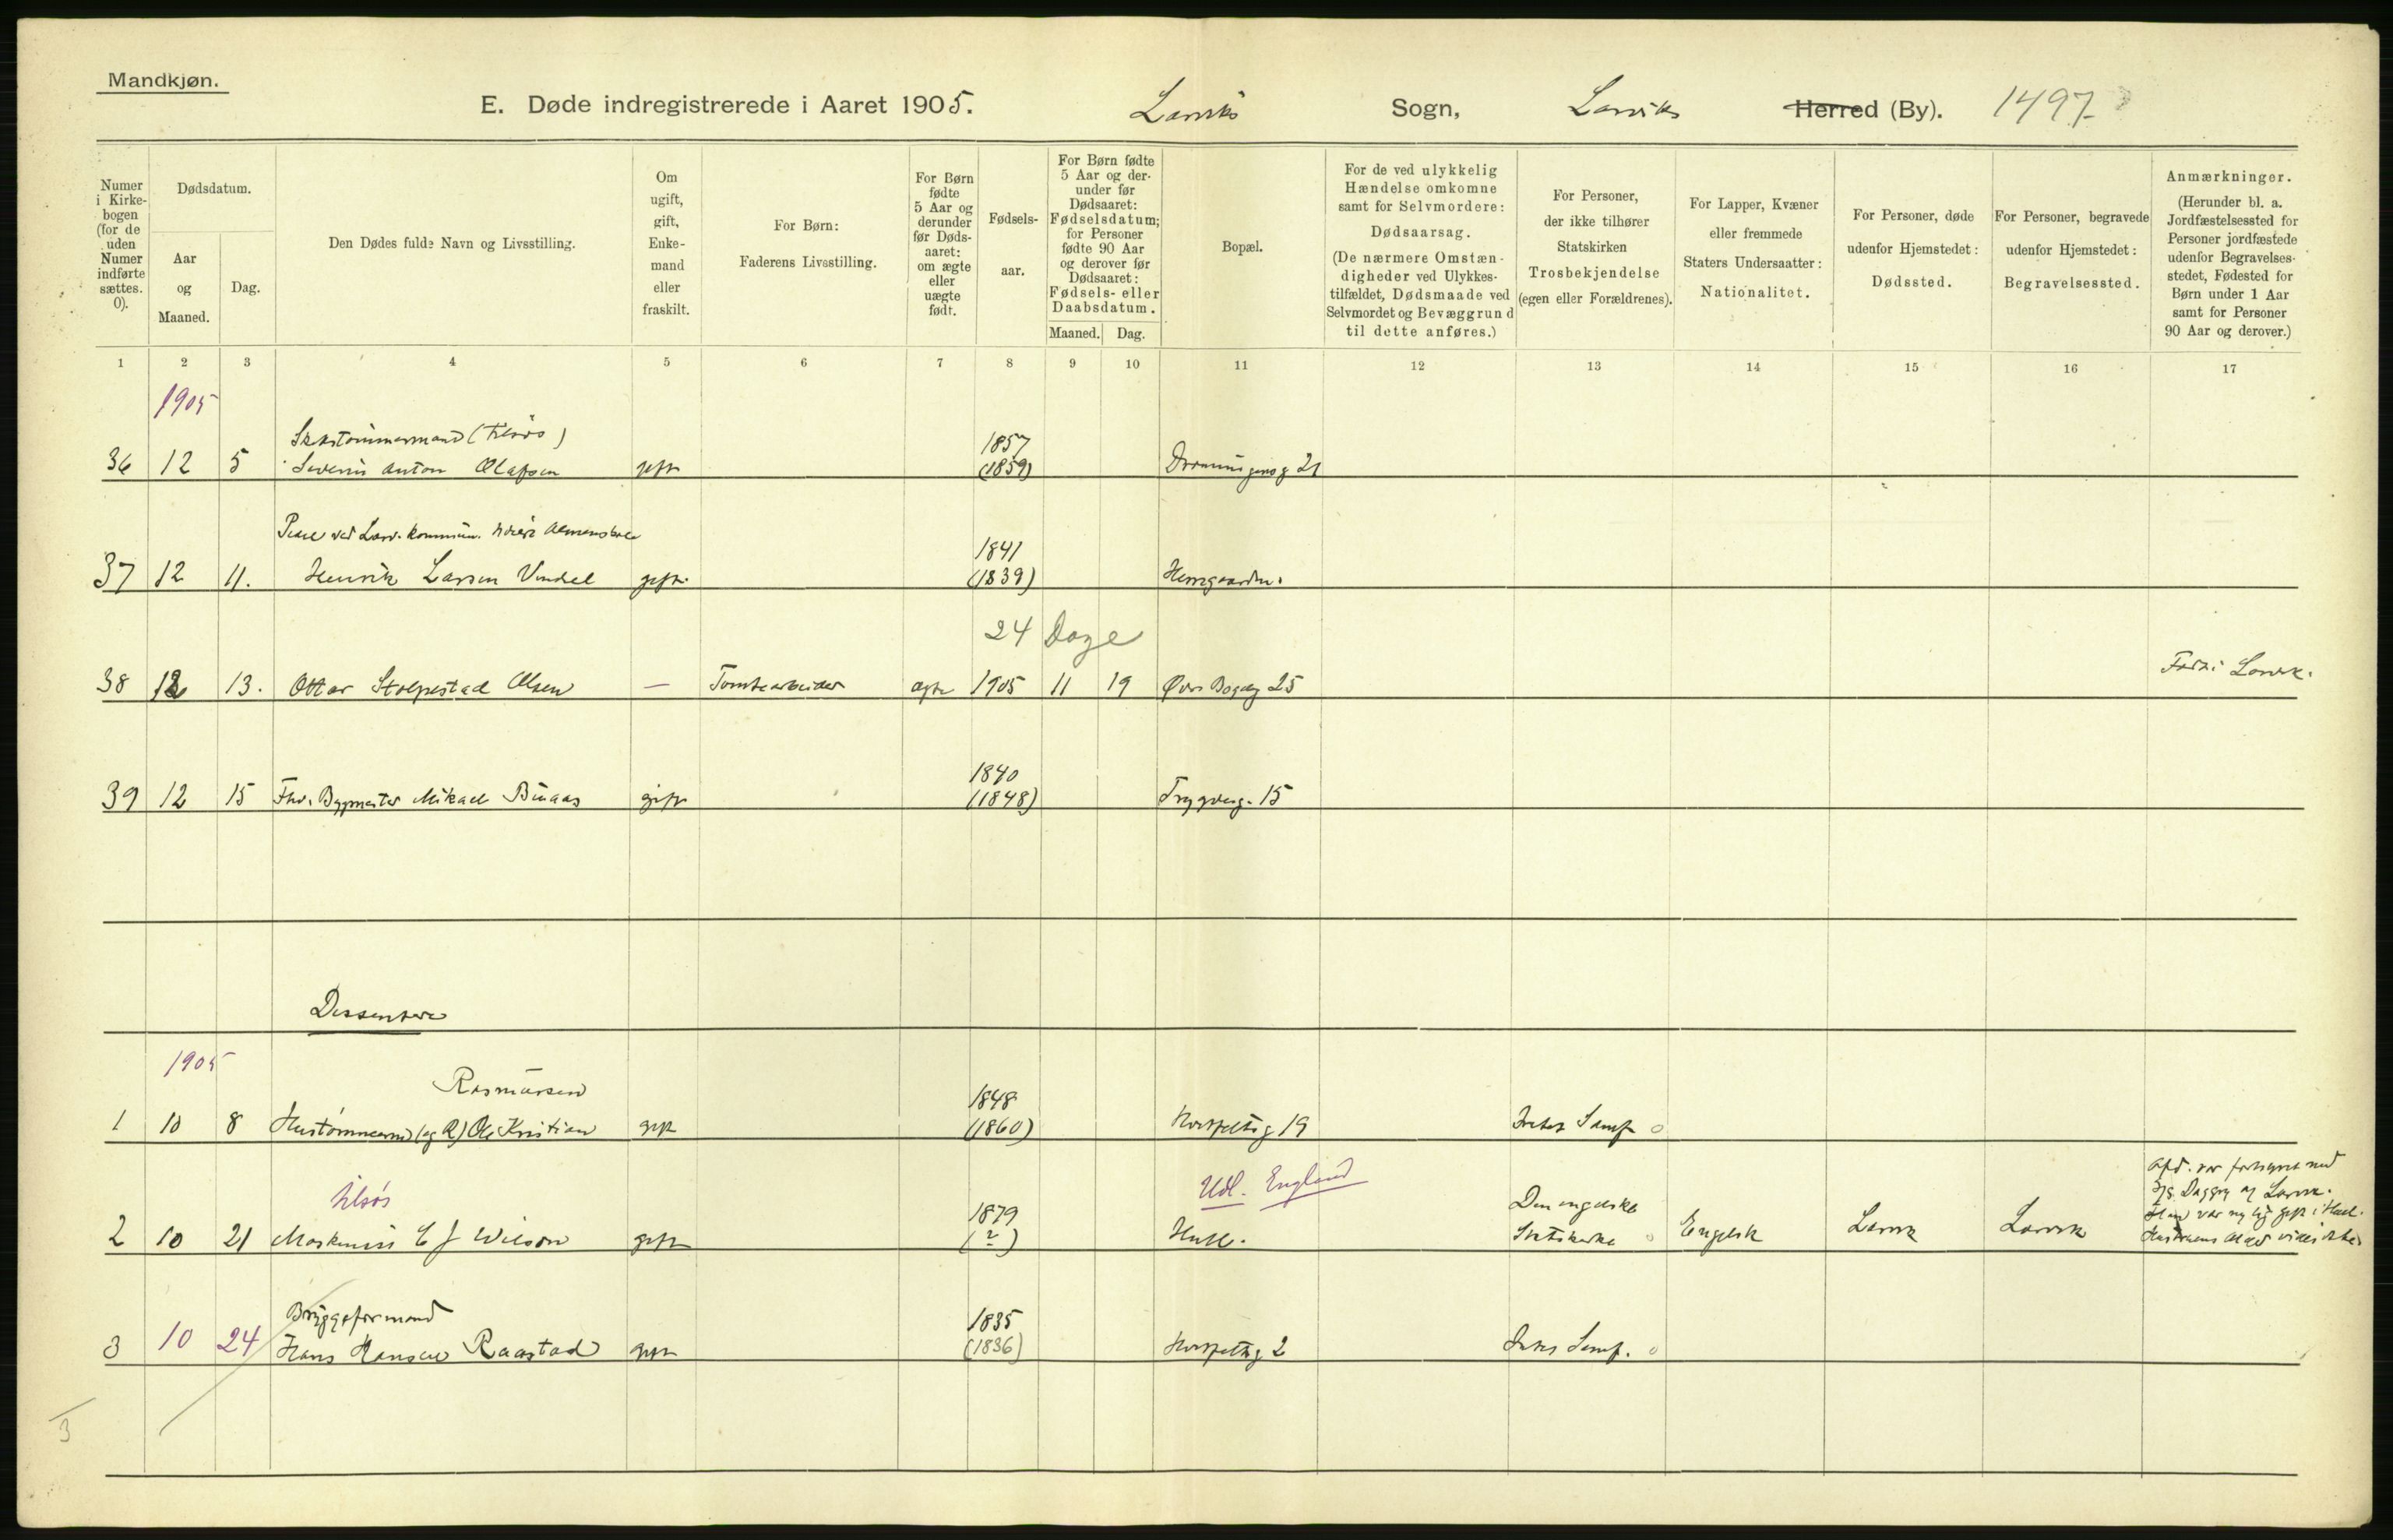 Mandkjøn.
E. Døde indregistrerede i Aaret 1905. Larviks Sogn, Larviks Herred (By). 1497
Numer i Kirke-bogen (for de uden Numer indførte sættes. 0).
Dødsdatum.
Aar og Maaned.
Dag.
Den Dødes fulde Navn og Livsstilling.
Om ugift, gift, Enke-mand eller fraskilt.
For Børn:
Faderens Livsstilling.
For Børn fødte 5 Aar og derunder før Døds-aaret: om ægte eller uægte født.
Fødsels-aar.
For Børn fødte 5 Aar og der-under før Dødsaaret: Fødselsdatum; for Personer fødte 90 Aar og derover før Dødsaaret: Fødsels- eller Daabsdatum.
Maaned. Dag.
Bopæl.
For de ved ulykkelig Hændelse omkomne samt for Selvmordere:
Dødsaarsag.
(De nærmere Omstæn-digheder ved Ulykkes-tilfældet, Dødsmaade ved Selvmordet og Bevæggrund til dette anføres.)
For Personer, der ikke tilhører Statskirken
Trosbekjendelse
(egen eller Forældrenes).
For Lapper, Kvæner eller fremmede Staters Undersaatter:
Nationalitet.
For Personer, døde udenfor Hjemstedet:
Dødssted.
For Personer, begravede udenfor Hjemstedet:
Begravelsessted.
Anmærkninger.
(Herunder bl. a. Jordfæstelsessted for Personer jordfæstede udenfor Begravelses-stedet, Fødested for Børn under 1 Aar samt for Personer 90 Aar og derover.)
1 2 3 4 5 6 7 8 9 10 11 12 13 14 15 16 17
1905
1857
36 12 5 Severin Anton Olafsen gift (1859) Dronningensg 21
1841
37 12 11. Henrik Larsen Vindel gift. (1839) Herregaarden.
24 Dage
38 12 13. Ottar Stolpestad Olsen — Tomtearbeider ægte 1905 11 19 Øvre Bøgeg 25 Født i Larvik.
1840
39 12 15 Fhv. Bygmester Mikael Buaas gift (1848) Trygvesg. 15
Dissentere
1905
Rasmussen
1848
1 10 8 Ole Kristian gift (1860) Hospitalsg 19 Samf
tilsøs
Udl. England
1879
Den engelske
2 10 21 Maskinist Wilson gift Hull. Statskirke Engelsk Larvik Larvik
Bryggeformand
1835
3 10 24 Hans Hansen Raastad gift (1836) Hospitalsg 2 Samf.
3